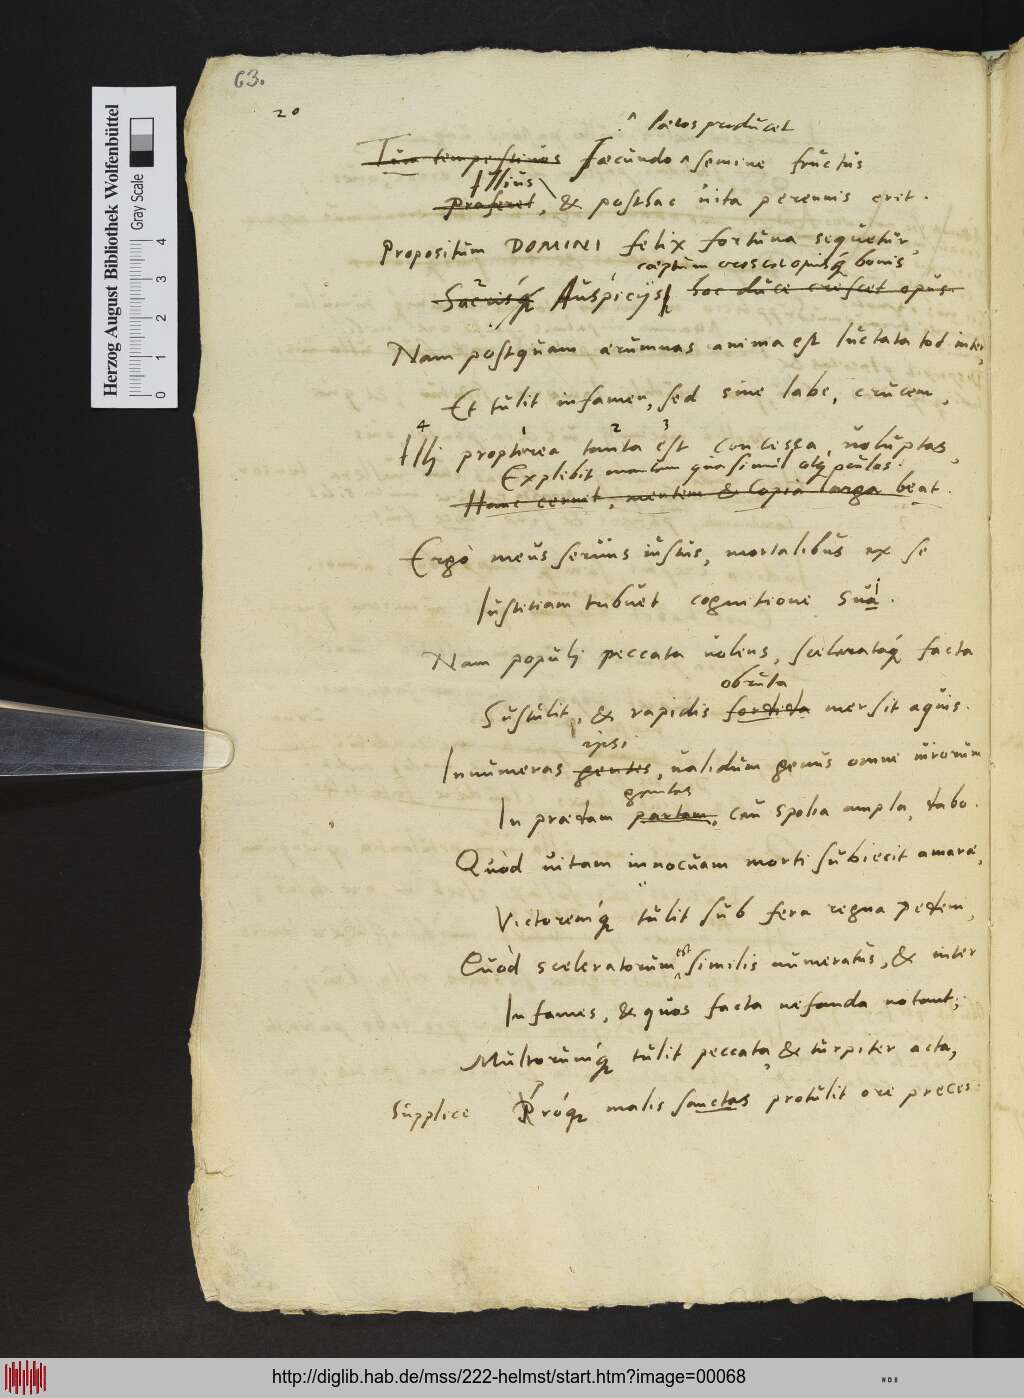 63.
20
lætos producet
Tum tempestiuos Fæcundo ^ semine fructus
Illius
Proferet, & posthac uita perennis erit.
Propositum DOMINI felix fortuna sequetur,
cæptum crescet opusq́ bonis
Sacrisq́ Auspicijs hoc duce crescet opus.
Nam postquam ærumnas anima est luctata tot inter,
Et tulit infamem, sed sine labe, crucem,
4 1 2 3
Illi propterea tanta est concessa uoluptas,
Explebit mentem quæ simul atq oculos.
Hanc cernet, mentem & copia larga beat.
Ergò meus seruus iustus, mortalibus ex se
Iustitiam tribuet cognitione sui.
Nam populi peccata uolens, scelerataq́ facta
obruta
Sustulit, & rapidis mersit aquis.
ipsi
Innumeras gentes, ualidum genus omne uirorum
In prædam partam, ceu spolia ampla, dabo.
Quòd uitam innocuam morti subiecit amaræ,
Victoremq́ tulit sub fera regna pedem,
est
Quòd sceleratorum ^ similis numeratus, & inter
Infames, & quos facta nefanda notant;
Multorumq́ tulit peccata, & turpiter acta,
Supplice Próq malis sanctas protulit ore preces.
Herzog August Bibliothek Wolfenbüttel
Gray Scale
0 1 2 3 4
http://diglib.hab.de/mss/222-helmst/start.htm?image=00068